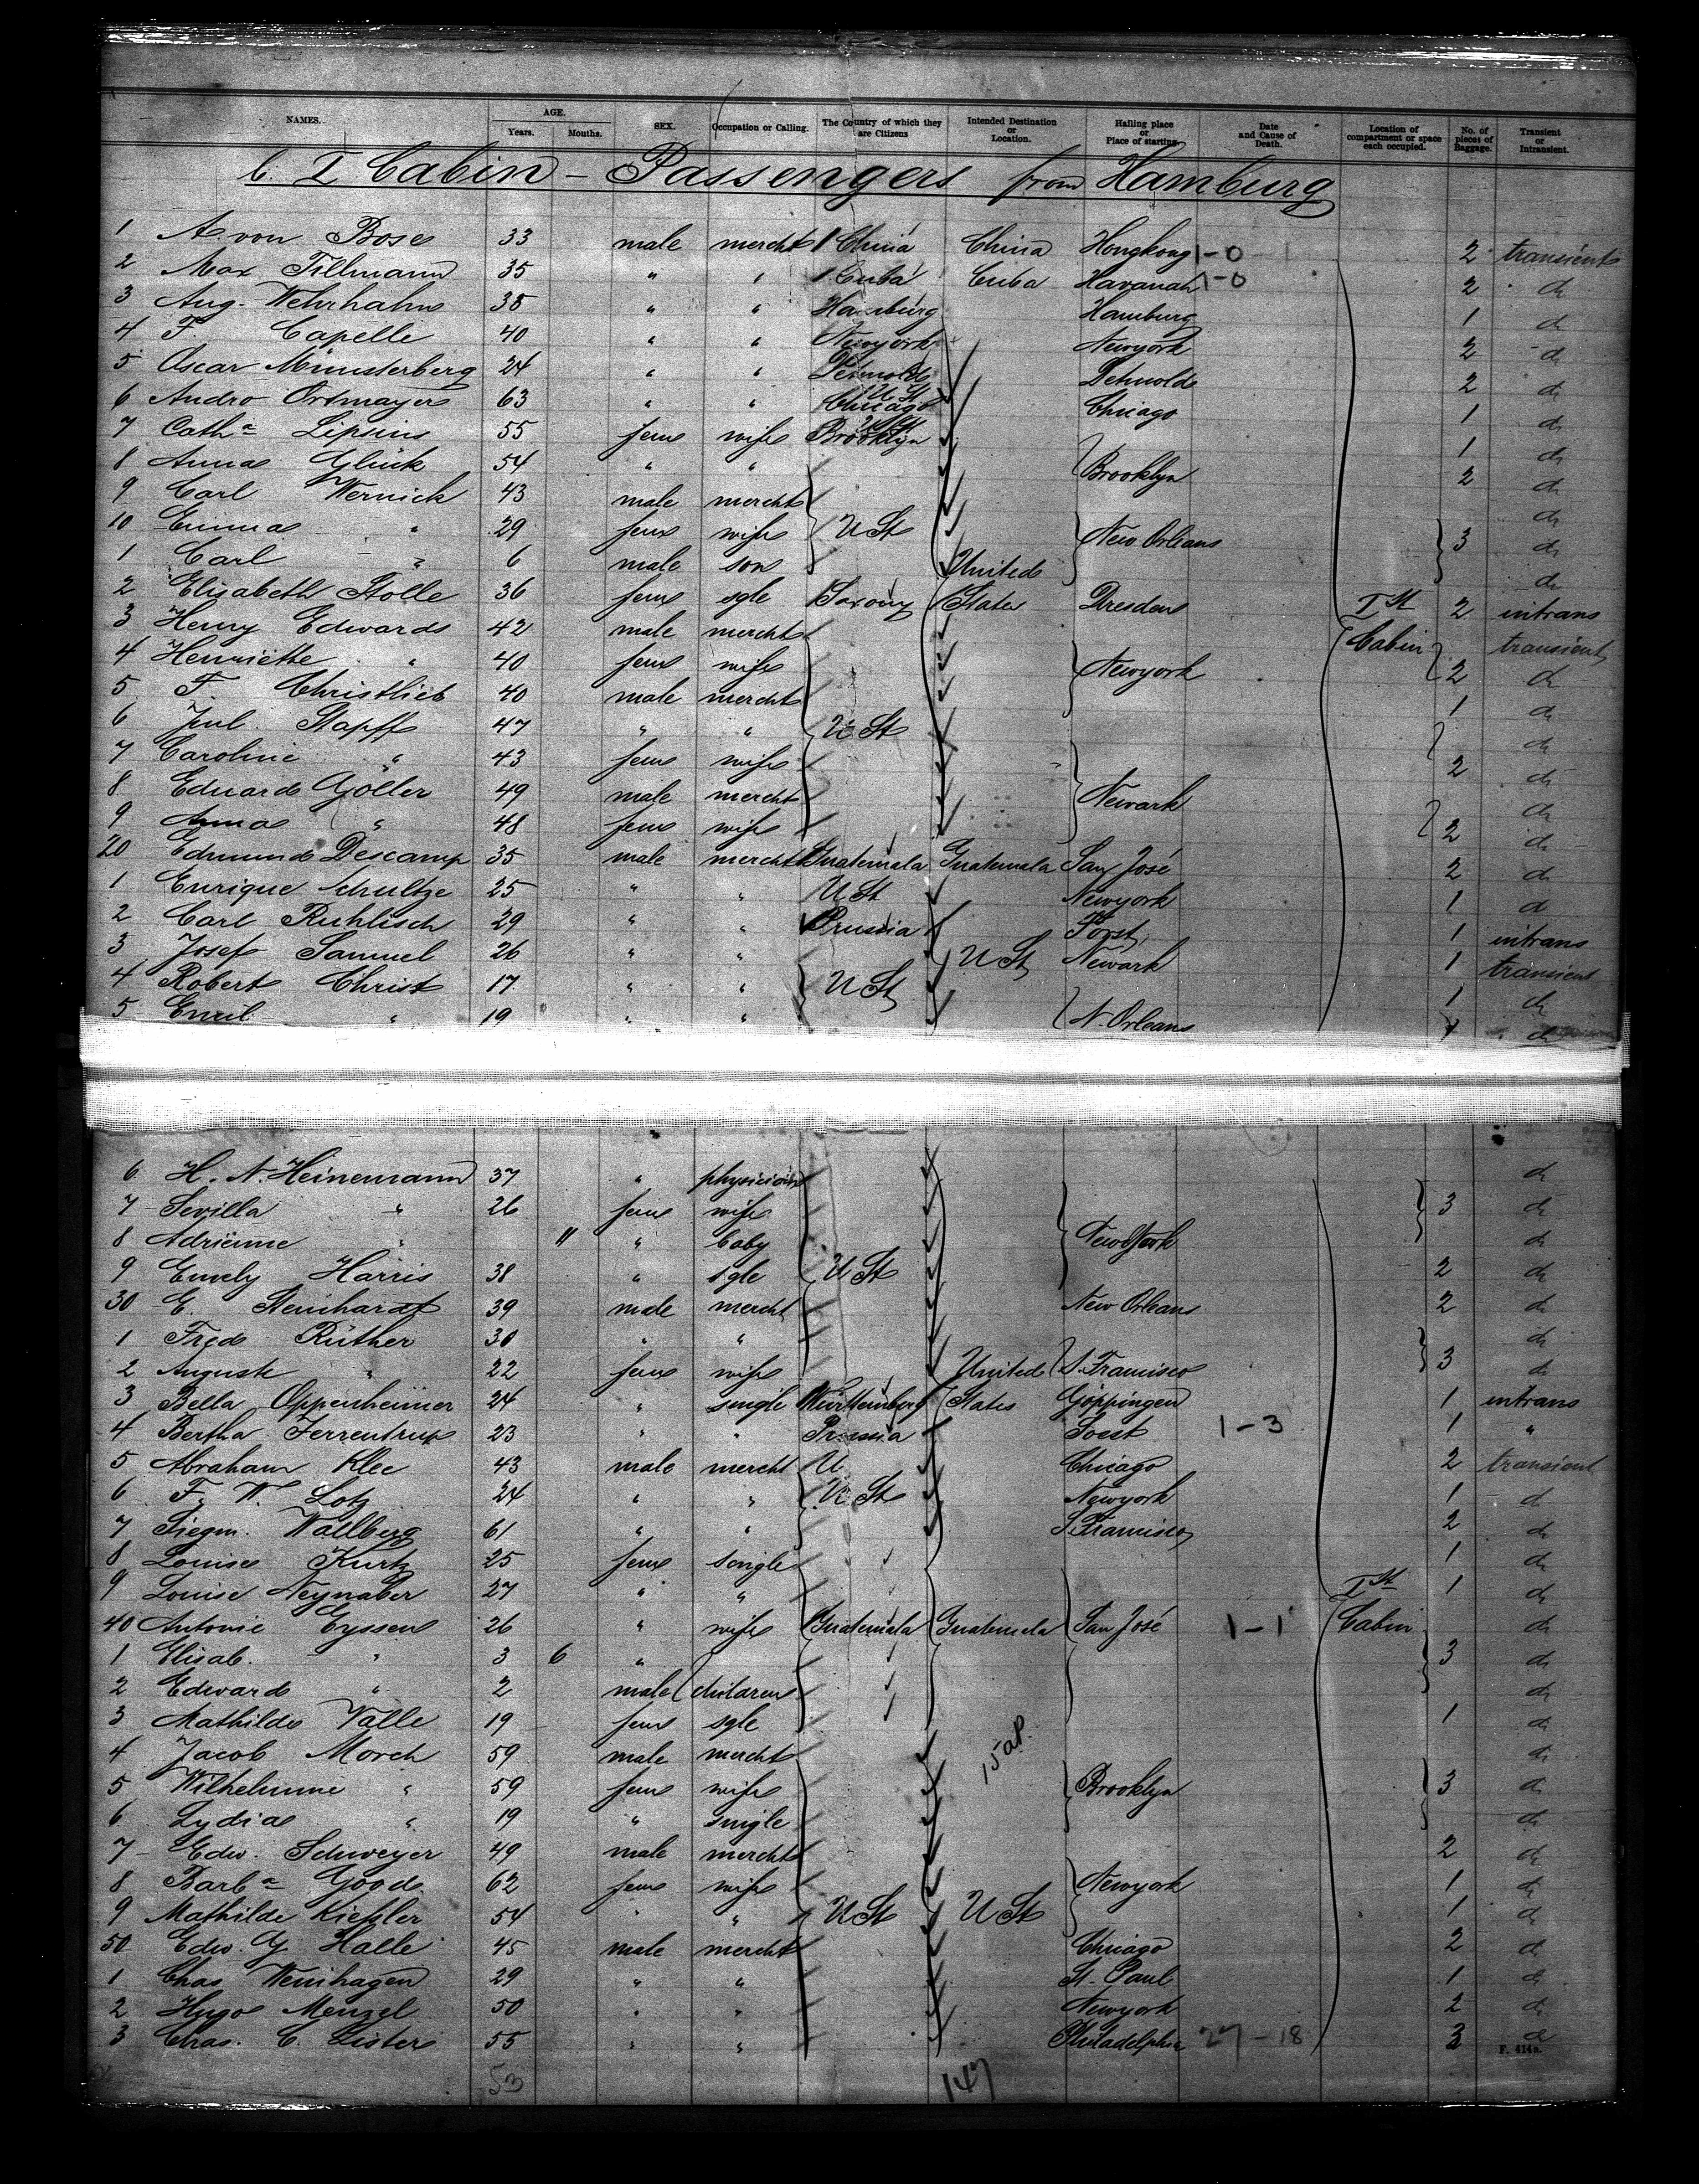 NAMES. AGE. Years. Months. SEX. Occupation or Calling. The Country of which they are Citizens Intended Destination or Location. Hailing place or Place of starting. Date and Cause of Death. Location of compartment or space each occupied. No. of pieces of Baggage. Transient or Intransient.
I Cabin - Passengers from Hamburg
1 A. von Bose 33 male mercht China China Hongkong 1-0 2 transient
2 Max Tillmann 35 " " Cuba Cuba Havanah 1-0 2 do
3 Aug. Wehrhahn 35 " " Hamburg Hamburg 1 do
4 F. Capelle 40 " " Newyork Newyork 2 do
5 Oscar Münsterberg 24 " " Detmold Detmold 2 do
6 Andro Ortmayer 63 " " Chicago U St Chicago 1 do
7 Cath a Lipsius 55 fem wife Brooklyn 1 do
8 Anna Glück 54 " " Brooklyn 2 do
9 Carl Wernick 43 male mercht do
10 Emma " 29 fem wife U St New Orleans 3 do
1 Carl " 6 male son United do
2 Elisabeth Stolle 36 fem sgle Saxony States Dresden Ist 2 intrans
3 Henry Edwards 42 male mercht Cabin transient
4 Henriette " 40 fem wife Newyork 2 do
5 F. Christlieb 40 male mercht 1 do
6 Jul. Stapff 47 " " U St do
7 Caroline " 43 fem wife 2 do
8 Eduard Göller 49 male mercht Newark do
9 Anna " 48 fem wife 2 do
20 Edmund Descamp 35 male mercht Guatemala Guatemala San José 2 do
1 Enrique Schultze 25 " " U St Newyork 1 do
2 Carl Ruhlisch 29 " " Prussia Forst 1 intrans
3 Josef Samuel 26 " " U St Newark 1 transient
4 Robert Christ 17 " " U St 1 do
5 Emil " 19 " " N. Orleans 1 do
6 H. N. Heinemann 37 " physician do
7 Sevilla " 26 fem wife 3 do
8 Adrienne " 11 " baby New York do
9 Emely Harris 38 " sgle U St 2 do
30 E. Steinhardt 39 male mercht New Orleans 2 do
1 Fred Rüther 30 " " do
2 Auguste " 22 fem wife United S. Francisco 3 do
3 Bella Oppenheimer 24 " single Württemberg States Göppingen 1 intrans
4 Bertha Ferrentrup 23 " " Prussia Soest 1-3 1 "
5 Abraham Klee 43 male mercht U Chicago 2 transient
6 F. W. Lotz 24 " " U St Newyork 1 do
7 Siegm. Wallberg 61 " " S. Francisco 2 do
8 Louise Kurtz 25 fem single 1 do
9 Louise Neynaber 27 " " Ist 1 do
40 Antonie Eyssen 26 " wife Guatemala Guatemala San José 1-1 Cabin do
1 Elisab. " 3 6 " 3 do
2 Edward " 2 male children do
3 Mathilde Valle 19 fem sgle 1 do
4 Jacob Morch 59 male mercht 15 ap. do
5 Wilhelmine " 59 fem wife Brooklyn 3 do
6 Lydia " 19 " single do
7 Edw. Schweyer 49 male mercht 2 do
8 Barb a Good 62 fem wife Newyork 1 do
9 Mathilde Kießler 54 " " U St U St 1 do
50 Edw. G Halle 45 male mercht Chicago 2 do
1 Chas Weinhagen 29 " " St. Paul 1 do
2 Hugo Menzel 50 " " Newyork 2 do
3 Chas. C. Lister 55 " " Philadelphia 27-18 3 do
F. 414a.
53 147